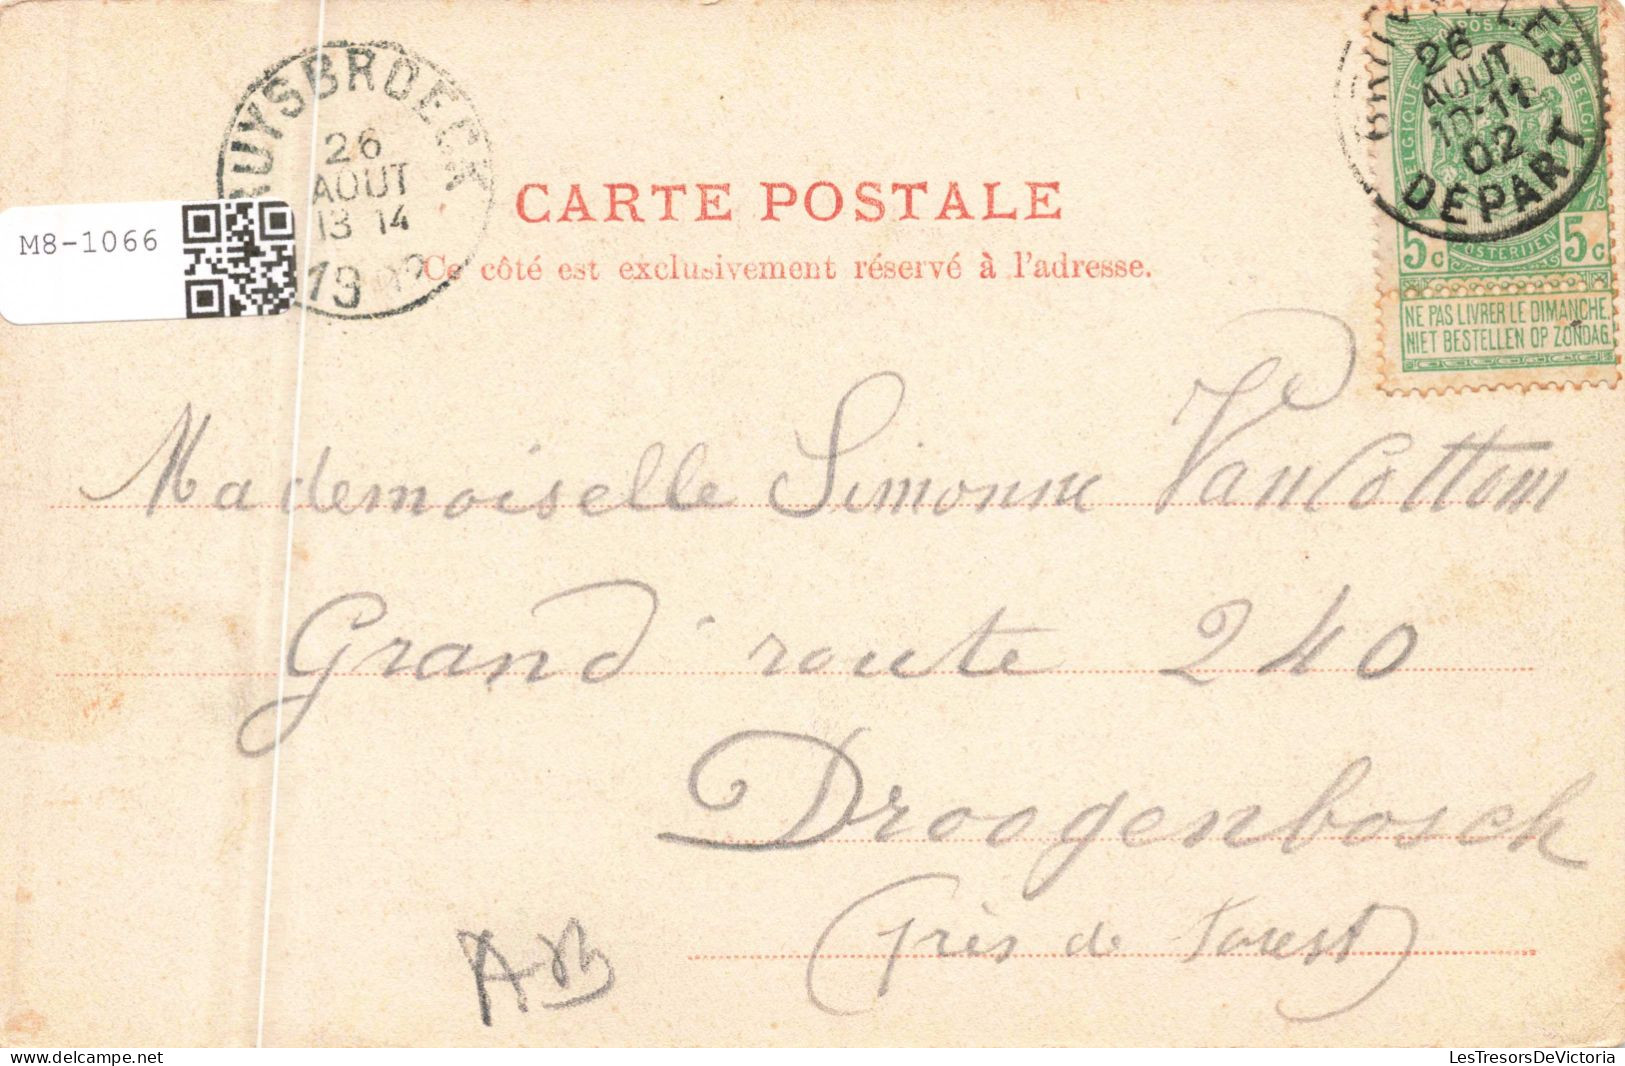 RUYSBROECK
26
AOUT
13 14
19
M8-1066
BRUXELLES
26
AOUT
10-11
02
DEPART
POSTES
BELGIQUE
BELGIË
5c POSTERIJEN 5c
NE PAS LIVRER LE DIMANCHE
NIET BESTELLEN OP ZONDAG
CARTE POSTALE
Ce côté est exclusivement réservé à l'adresse.
Mademoiselle Simonne VanCottom
Grand'route 240
Droogenbosch
(près de Forest)
AB
LesTresorsDeVictoria